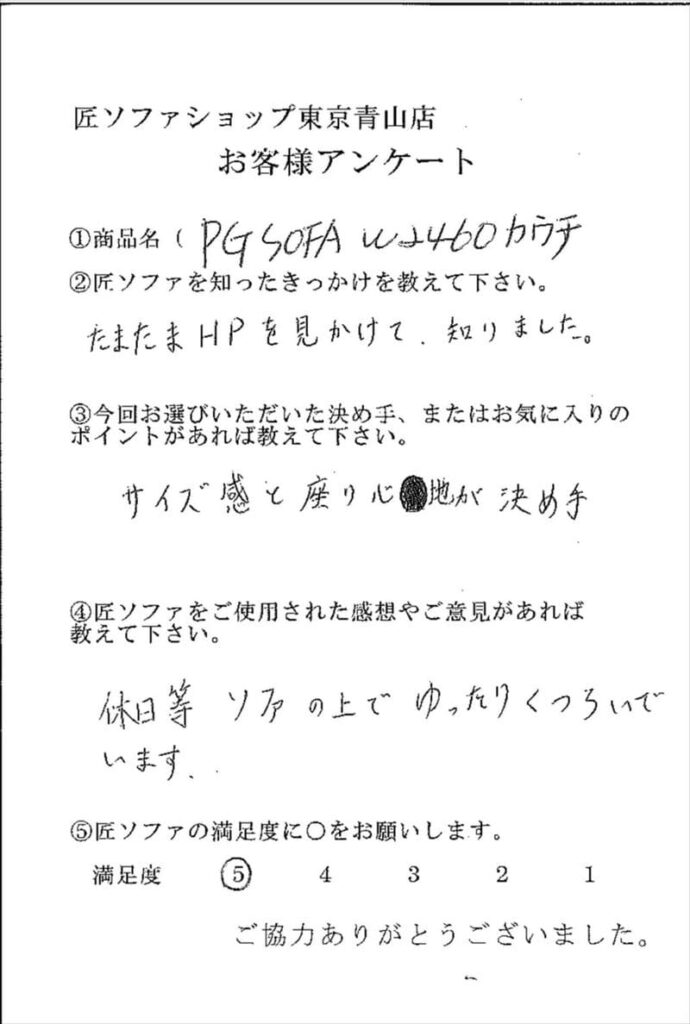 匠ソファショップ東京青山店
お客様アンケート
①商品名( PG SOFA W2460カウチ
②匠ソファを知ったきっかけを教えて下さい。
たまたまHPを見かけて、知りました。
③今回お選びいただいた決め手、またはお気に入りの
ポイントがあれば教えて下さい。
サイズ感と座り心地が決め手
④匠ソファをご使用された感想やご意見があれば
教えて下さい。
休日等 ソファの上で ゆったりくつろいで
います。
⑤匠ソファの満足度に○をお願いします。
満足度 ⑤ 4 3 2 1
ご協力ありがとうございました。